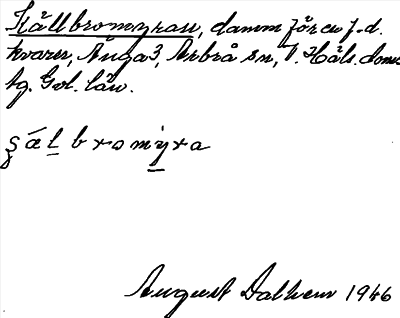 Källbromyran, damm för en f.d.
kvarn, Änga 3, Arbrå sn, V. Häls. doms.
tg. Gvl. län.
s̨ äl bromyra
August Dalhem 1946